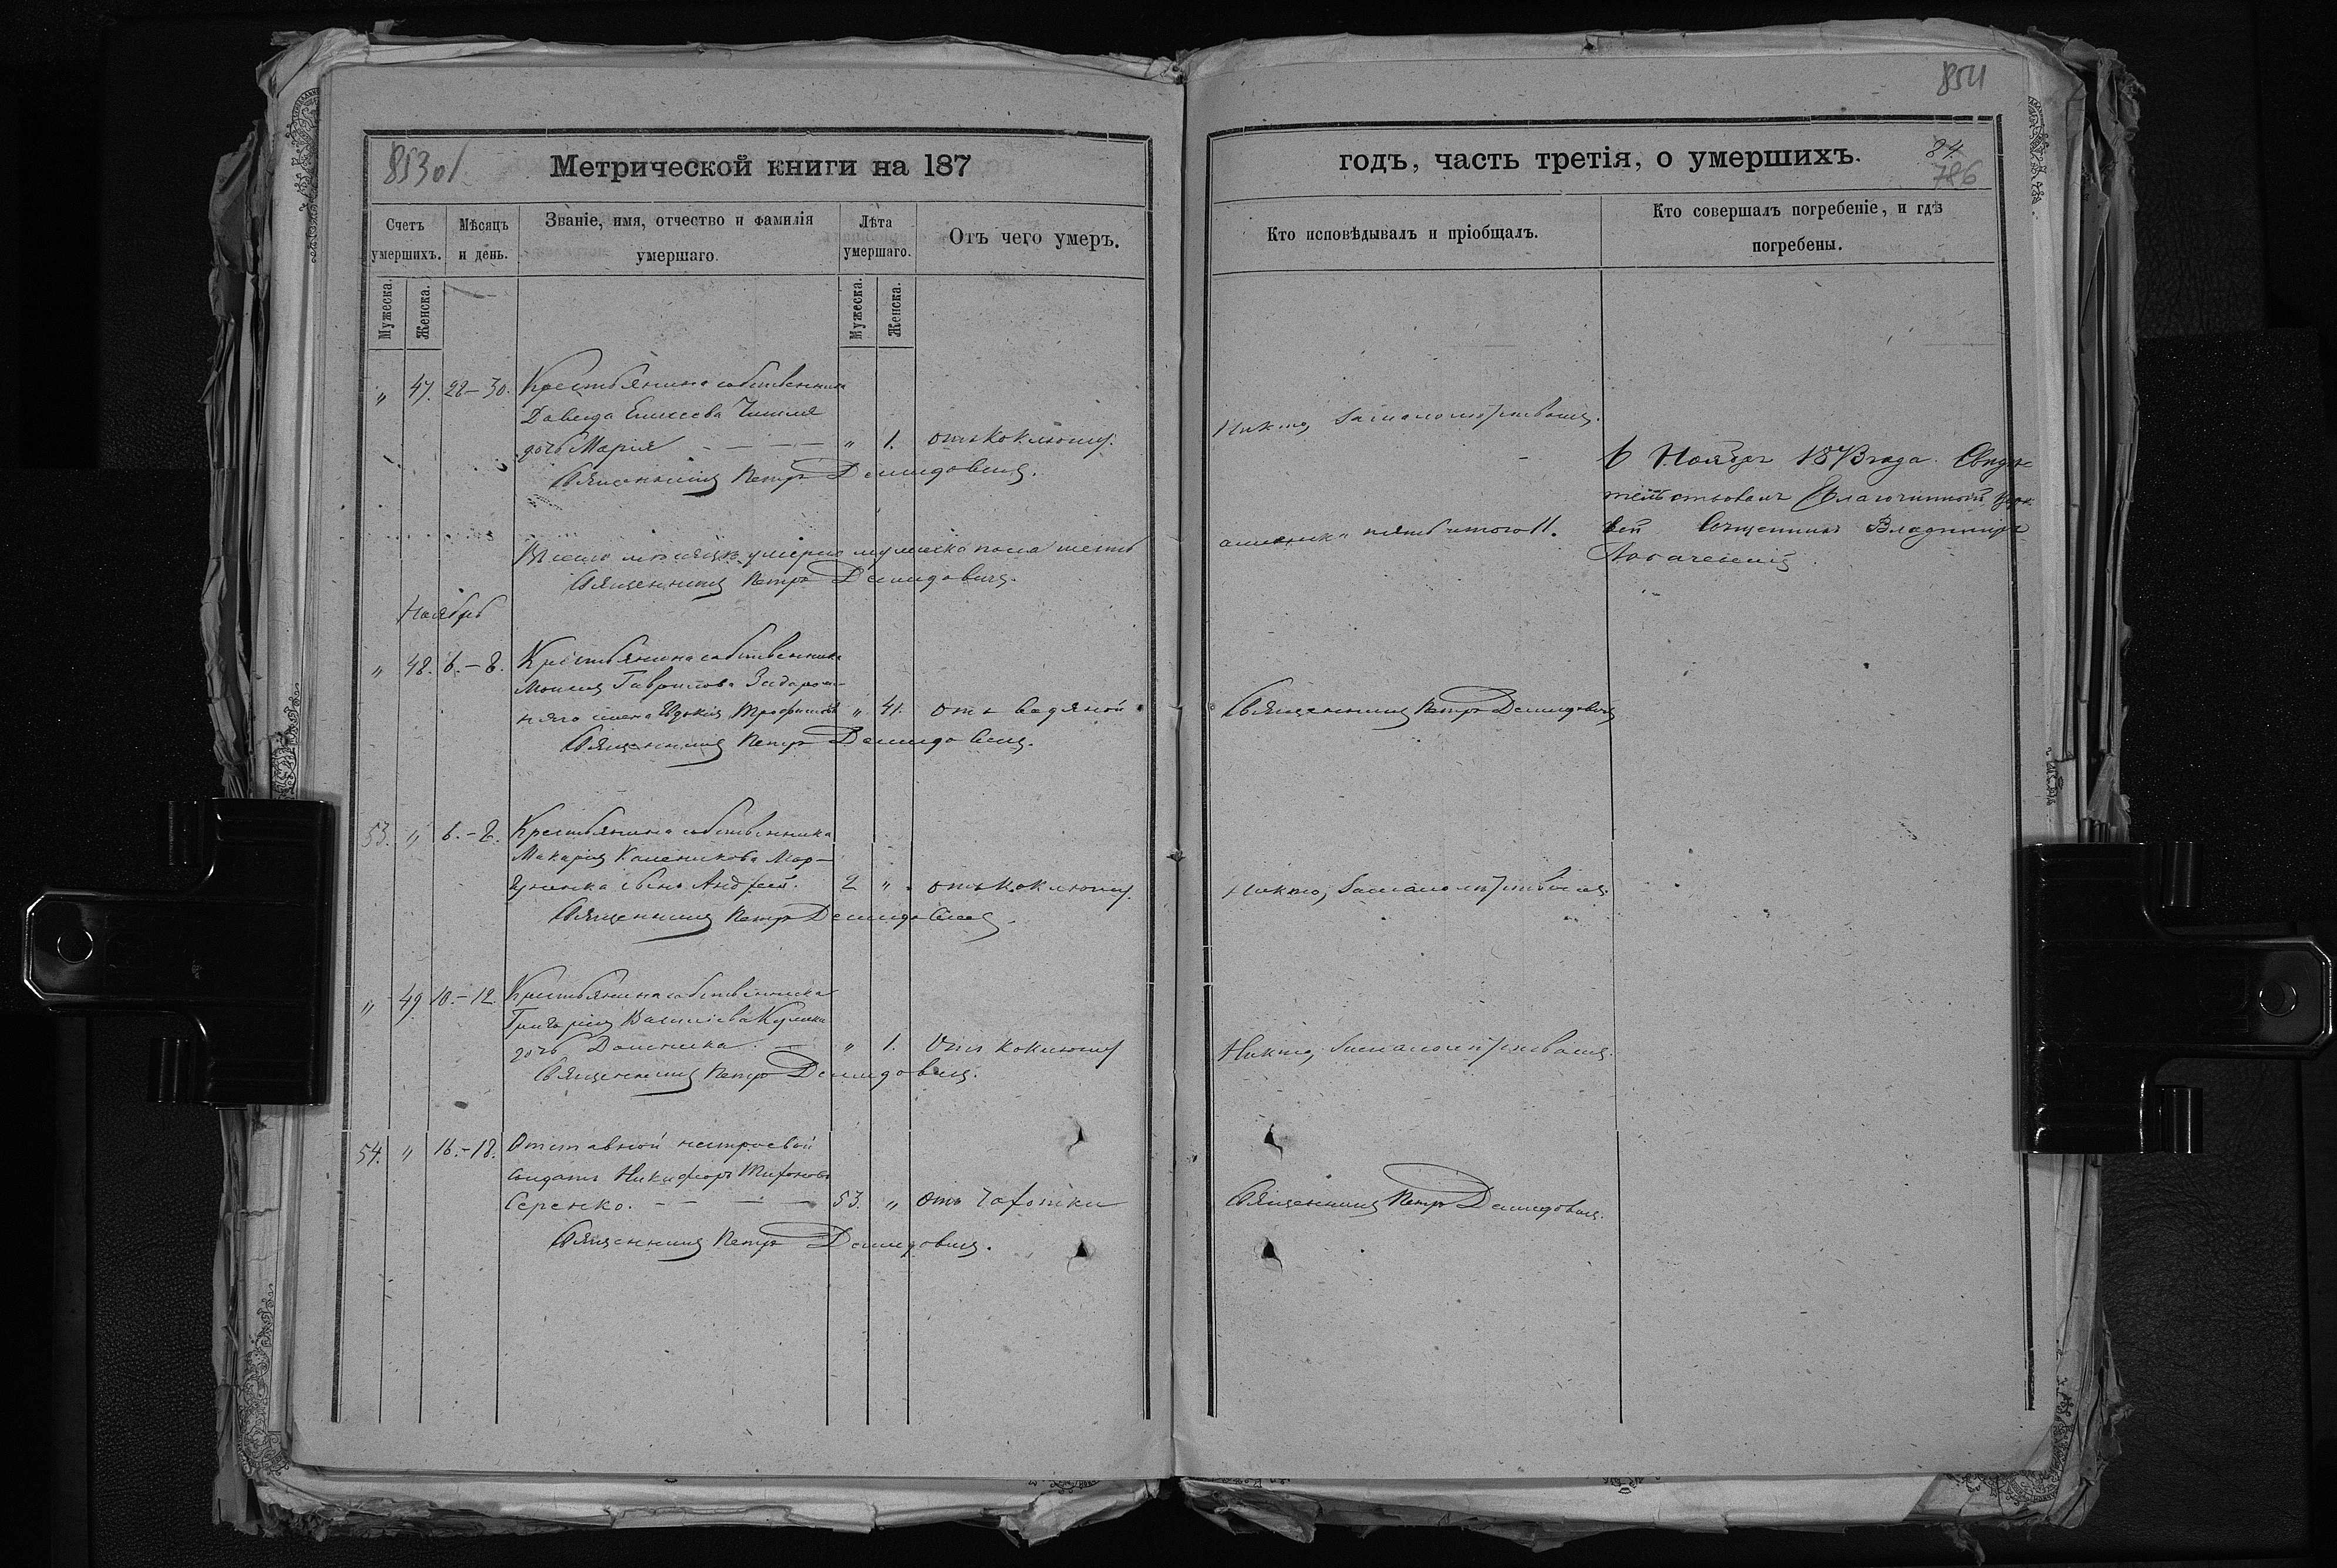 854
853об
Метрической книги на 187
годъ, часть третія, о умершихъ.
84.
786
Счетъ умершихъ.
Мѣсяцъ и день.
Званіе, имя, отчество и фамилія умершаго.
Лѣта умершаго.
Отъ чего умеръ.
Кто исповѣдывалъ и пріобщалъ.
Кто совершалъ погребеніе, и гдѣ погребены.
Мужеска.
Женска.
Мужеска.
Женска.
" 47. 28–30. Крестьянина собственника
Давида Елисеева
дочь Марія – – – " 1. отъ коклюшу.
Никто, за малолѣтствомъ.
Священникъ Петръ Демидовичъ.
6 Ноября 1873 года. Свидѣ-
тельствовалъ Благочинный Церк-
вей Священникъ Владимиръ
Всего мѣсяцѣ умерло мужеска пола шесть
пять итого 11.
Священникъ Петръ Демидовичъ.
Ноябрь
" 48. 6.–8. Крестьянина собственника
Моисея Гаврилова Задорож-
няго жена Евдокія Трофимова " 41. отъ водяной
Священникъ Петръ Демидовичъ
Священникъ Петръ Демидовичъ.
53. " 6.–8. Крестьянина собственника
Макарія Каленикова Мар-
ченка сынъ Андрей. 2 " отъ коклюшу.
Никто, за малолѣтствомъ.
Священникъ Петръ Демидовичъ
" 49 10.–12. Крестьянина собственника
Григорія Василіева
дочь Домника. – " 1. Отъ коклюшу
Никто, за малолѣтствомъ.
Священникъ Петръ Демидовичъ.
54. " 16.–18. Отставной нестроевой
солдатъ Никифоръ Тифоновъ
Серенко. – – – 53. " отъ чахотки
Священникъ Петръ Демидовичъ.
Священникъ Петръ Демидовичъ.